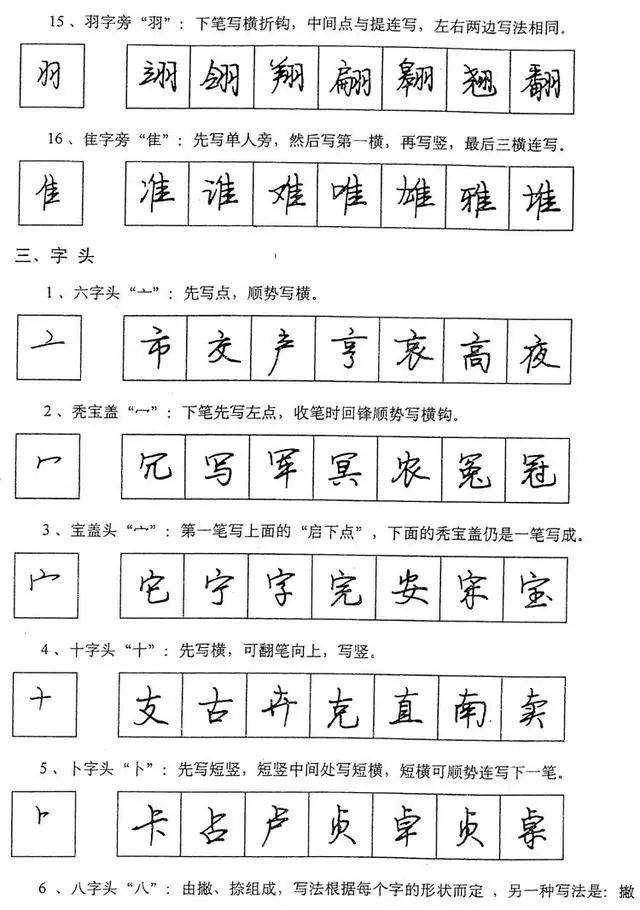 15、羽字旁“羽”：下笔写横折钩，中间点与提连写，左右两边写法相同。
羽 翊 翎 翔 翩 翱 翘 翻
16、隹字旁“隹”：先写单人旁，然后写第一横，再写竖，最后三横连写。
隹 准 谁 难 唯 雄 雅 堆
三、字 头
1、六字头“亠”：先写点，顺势写横。
亠 市 交 产 亨 哀 高 夜
2、秃宝盖“冖”：下笔先写左点，收笔时回锋顺势写横钩。
冖 冗 写 军 冥 农 冤 冠
3、宝盖头“宀”：第一笔写上面的“启下点”，下面的秃宝盖仍是一笔写成。
宀 它 宁 字 完 安 宋 宝
4、十字头“十”：先写横，可翻笔向上，写竖。
十 支 古 卉 克 直 南 卖
5、卜字头“卜”：先写短竖，短竖中间处写短横，短横可顺势连写下一笔。
卜 卡 占 卢 贞 卓 贞 桌
6、八字头“八”：由撇、捺组成，写法根据每个字的形状而定，另一种写法是：撇